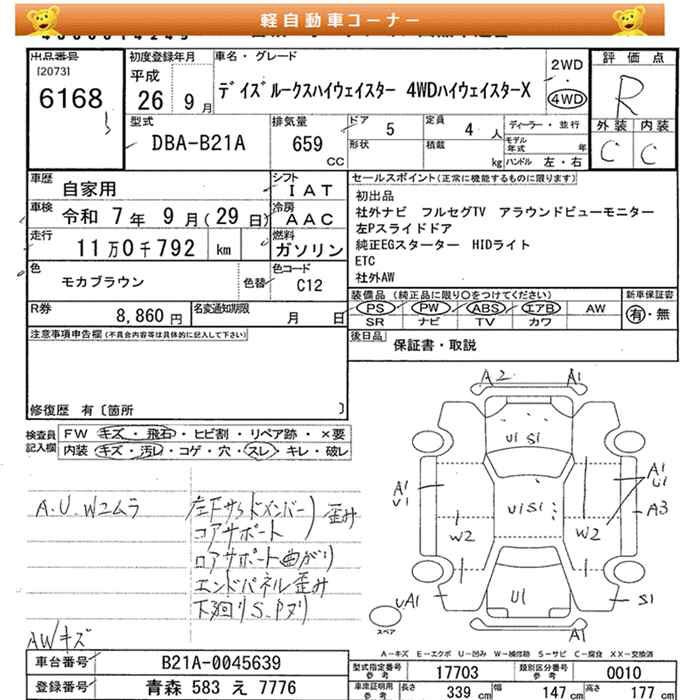 軽自動車コーナー
出品番号
[2073]
6168
初度登録年月
平成
26 年 9 月
車名・グレード
デイズルークスハイウェイスター 4WDハイウェイスターX
2WD
・
4WD
評価点
R
外装 内装
C C
型式
DBA-B21A
排気量
659
CC
ドア 5
形状
定員 4 人
積載 kg
ディーラー・並行
モデル年式 年
ハンドル 左・右
車歴
自家用
シフト
IAT
車検 令和 7年 9月(29日)
冷房
AAC
走行
11万0千792 km
燃料
ガソリン
色
モカブラウン
色替
色コード
C12
R券
8,860 円
名変通知期限
月 日
セールスポイント(正常に機能するものに限ります)
初出品
社外ナビ フルセグTV アラウンドビューモニター
左Pスライドドア
純正EGスターター HIDライト
ETC
社外AW
装備品 (純正品に限り○をつけてください)
PS PW ABS エアB AW
SR ナビ TV カワ
新車保証書
有・無
後日品 保証書・取説
注意事項申告欄(不具合内容等は具体的に記入して下さい)
修復歴 有〔箇所 〕
検査員記入欄
FW キズ・飛石・ヒビ割・リペア跡・×要
内装 キズ・汚レ・コゲ・穴・スレ・キレ・破レ
A.U.W2ムラ
左Fサイドメンバー
コアサポート
歪み
ロアサポート曲がり
エンドパネル歪み
下廻りS.Pヌリ
AWキズ
A2 A1
U1 S1
A1
U1
A1
U1
U1S1
A3
W2 W2
UA1
U1
S1
A1
スペア
A-キズ E-エクボ U-凹み W-補修跡 S-サビ C-腐食 XX-交換済
車台番号 B21A-0045639
登録番号 青森 583 え 7776
型式指定番号
参考
17703
類別区分番号
参考
0010
車庫証明用
参考
長さ 339 cm 幅 147 cm 高さ 177 cm